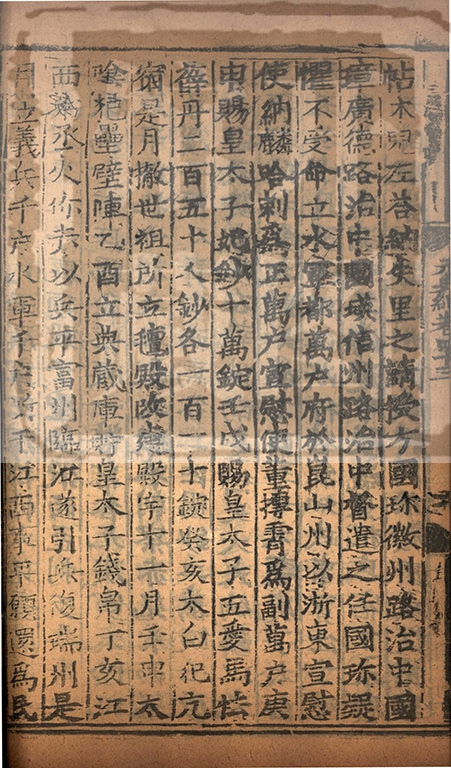 帖木兒左荅納失里之請授方國珍徽州路治中國
璋廣德路治中國瑛信州路治中督遣之任國珍疑
懼不受命立水軍都萬户府於崑山州以浙東宣慰
使納麟哈剌爲正萬户宣慰使董摶霄爲副萬户庚
申賜皇太子妃鈔十萬錠壬戌賜皇太子五愛馬怯
薛丹二百五十人鈔各一百一十錠癸亥太白犯亢
宿是月撤世祖所立氊殿改建殿宇十一月壬申太
陰犯壘壁陣乙酉立典藏庫貯皇太子錢帛丁亥江
西丞火你赤以兵平富州臨江遂引兵復瑞州是
月立義兵千户水軍千户所于江西事平願還爲民